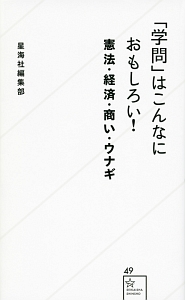 「学問」はこんなに
おもしろい！
憲法・経済・商い・ウナギ
星海社編集部
49
SEIKAISHA
SHINSHO